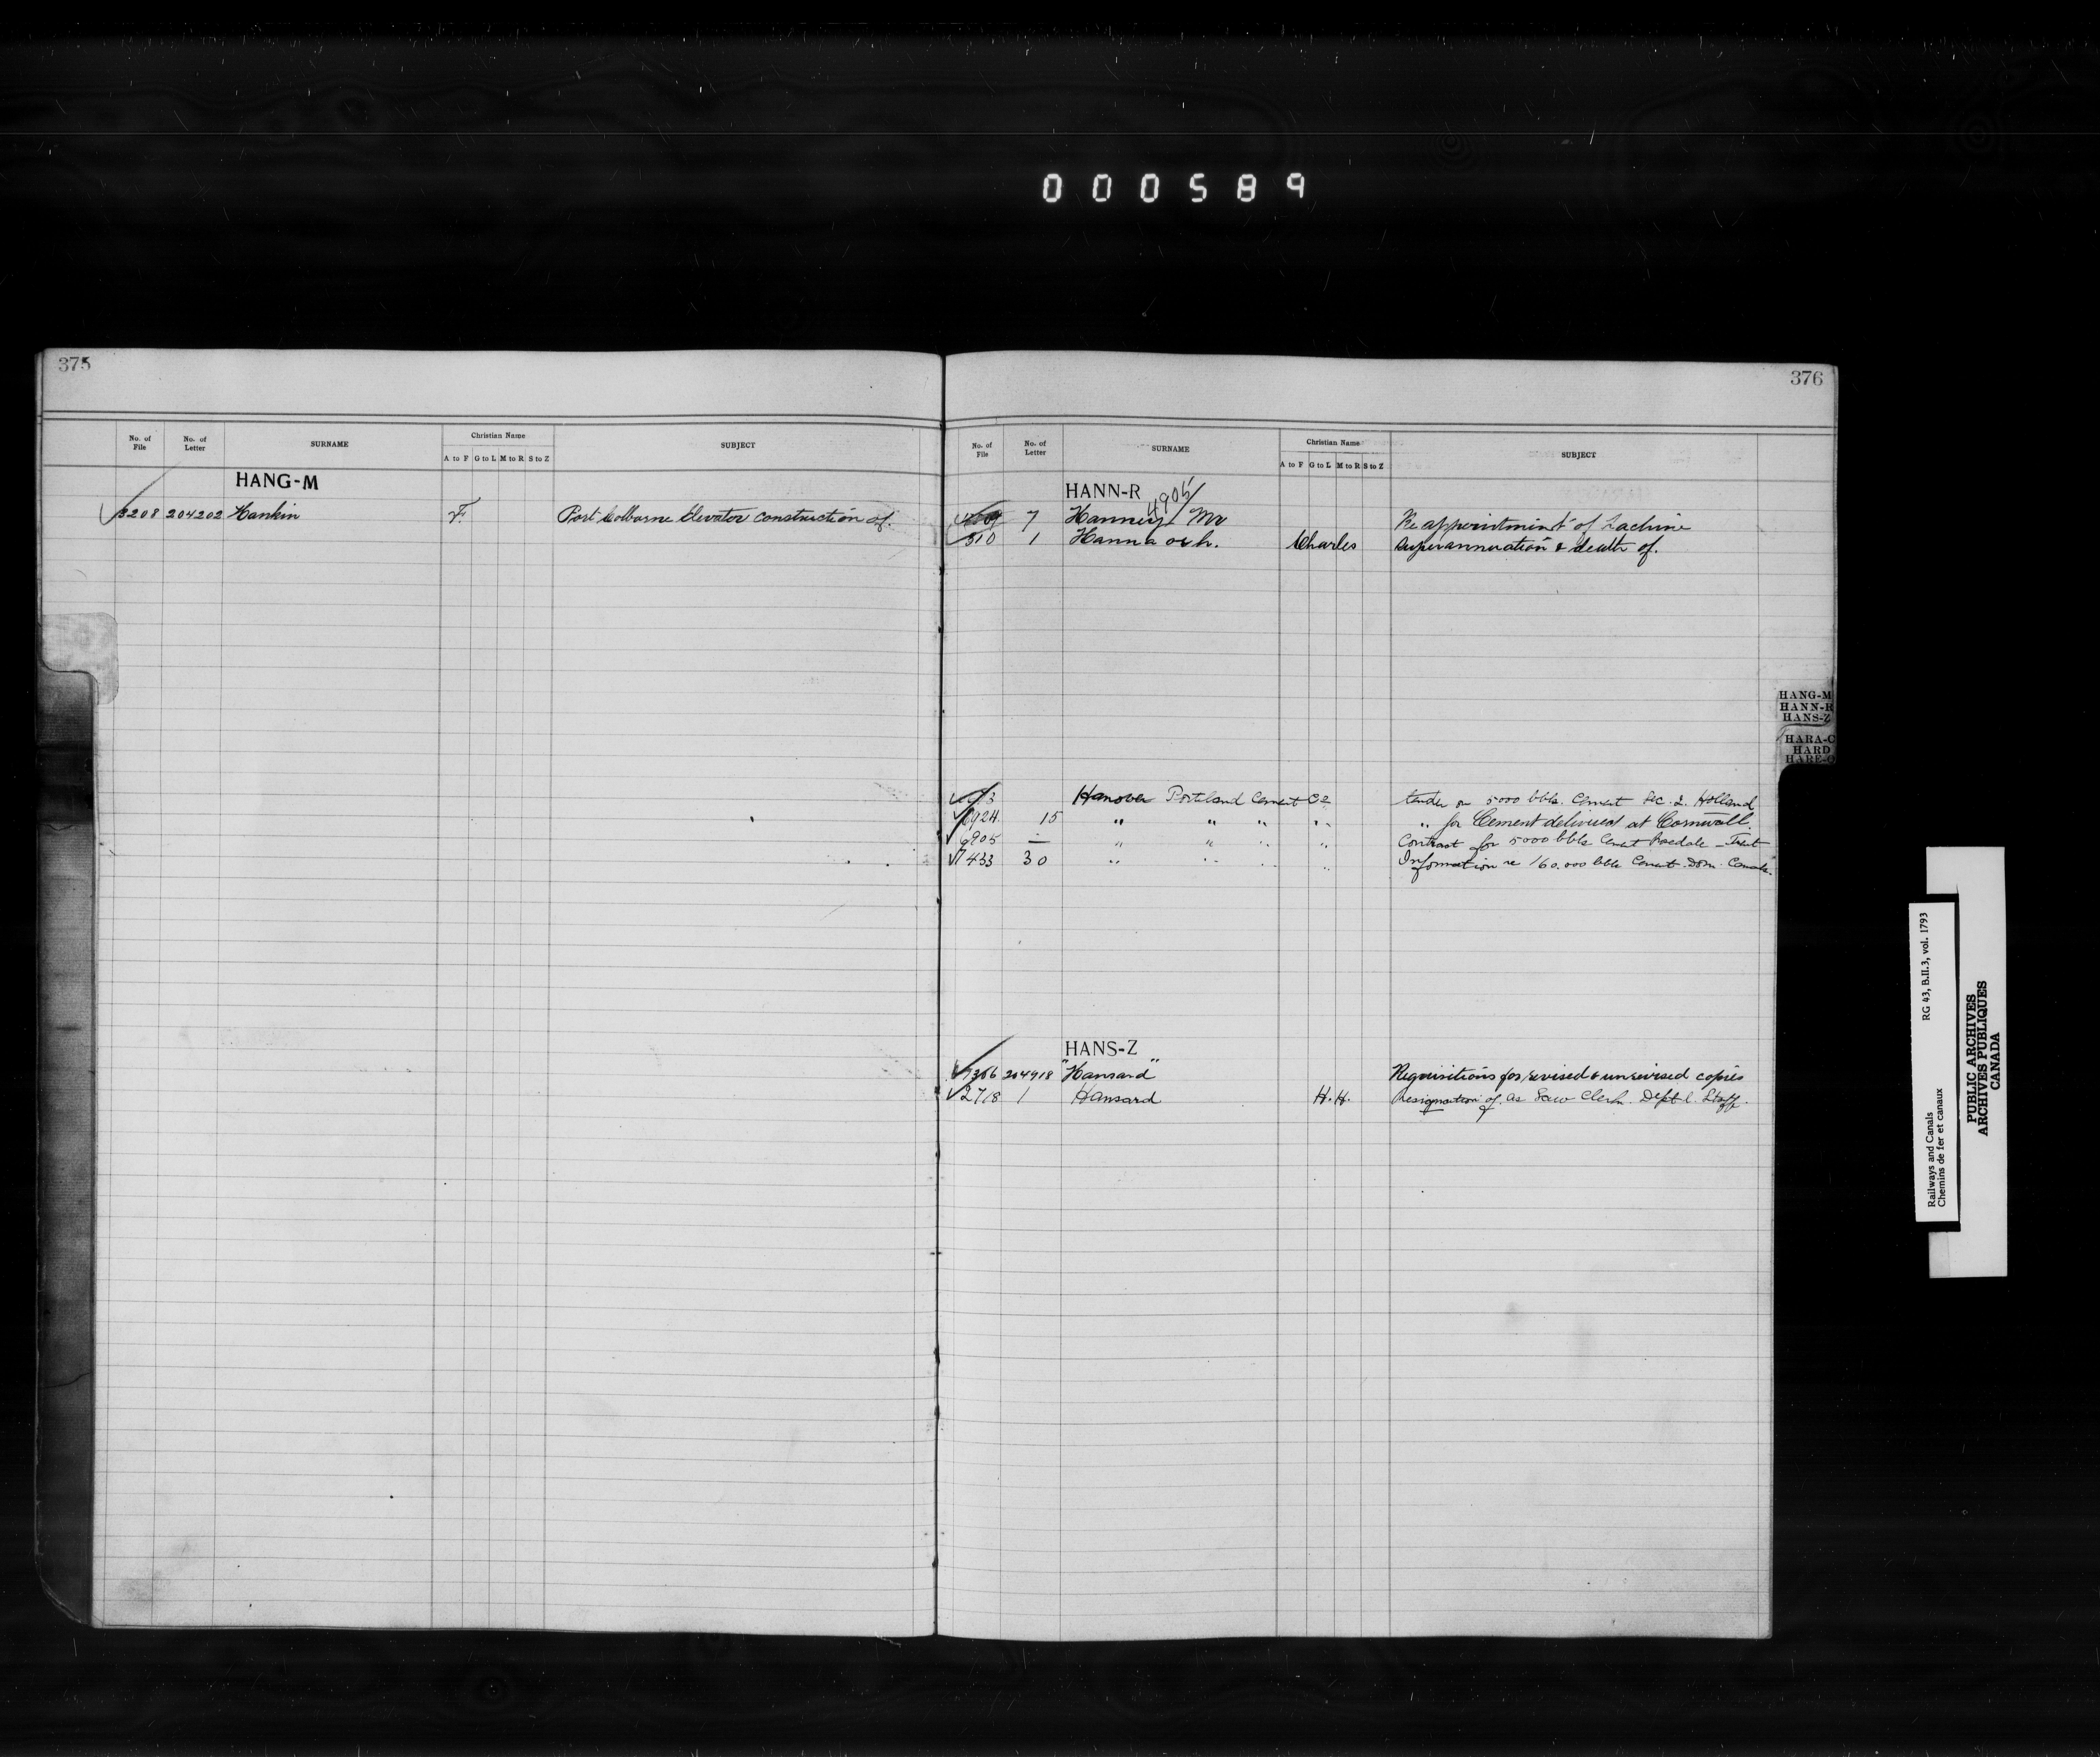 000589
375
No. of File No. of Letter SURNAME Christian Name SUBJECT
A to F G to L M to R S to Z
HANG-M
3208 204202 Hankin F. Port Colborne Elevator construction of.
376
No. of File No. of Letter SURNAME Christian Name SUBJECT
A to F G to L M to R S to Z
HANN-R
4905
7 Hanney Mr Re appointment of Lachine
510 1 Hanna Charles Superannuation & death of.
Hanover Portland Cement Co tender on 5000 bbls. Cement Sec. 2. Holland
6924 15 " " " " " for Cement delivered at Cornwall
6905 — " " " " Contract for 5000 bbls Cement Rosedale - Trent
7433 30 " " " " Information re 160.000 bbls Cement Dom. Canals.
HANS-Z
7366 204918 "Hansard" Requisitions for revised & unrevised copies
2718 1 Hansard H.H. Resignation of as Law Clerk. Dept'l. Staff.
HANG-M
HANN-R
HANS-Z
HARA-C
HARD
HARE-G
Railways and Canals RG 43, B.II.3, vol. 1793
Chemins de fer et canaux
PUBLIC ARCHIVES
ARCHIVES PUBLIQUES
CANADA